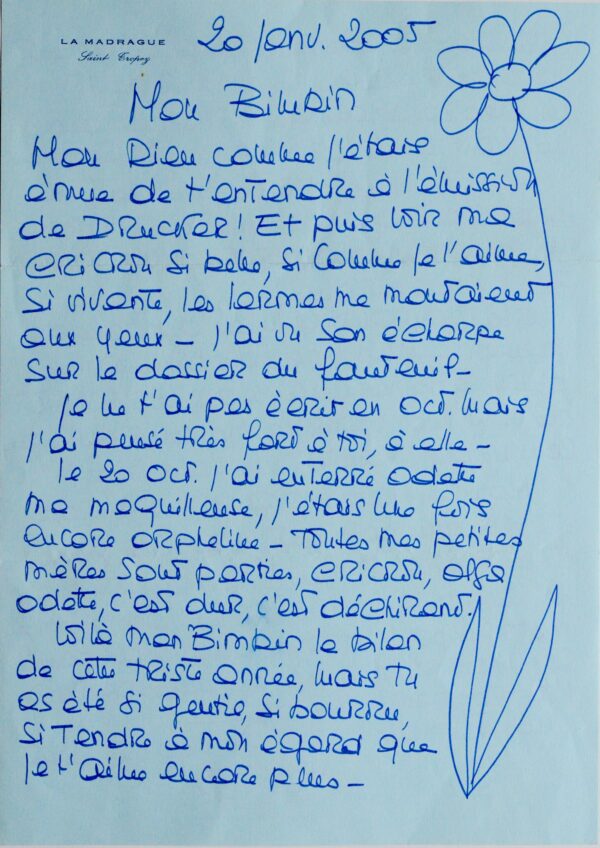 LA MADRAGUE
Saint Tropez
20 Janv. 2005
Mon Bimbin
Mon Dieu comme j'étais
émue de t'entendre à l'émission
de DRucker! Et puis voir ma
CRICRON si belle, si comme je l'aime,
si vivante, les larmes me montaient
aux yeux – J'ai vu son écharpe
sur le dossier du fauteuil –
je ne t'ai pas écrit en oct. mais
j'ai pensé très fort à toi, à elle –
le 20 oct. j'ai enterré Odette
ma maquilleuse, j'étais une fois
encore orpheline – Toutes mes petites
mères sont parties, CRICRON, Olga
Odette, c'est dur, c'est déchirant.
Voilà mon Bimbin le bilan
de cette triste année, mais tu
as été si gentil, si bourru,
si Tendre à mon égard que
je t'aime encore plus –